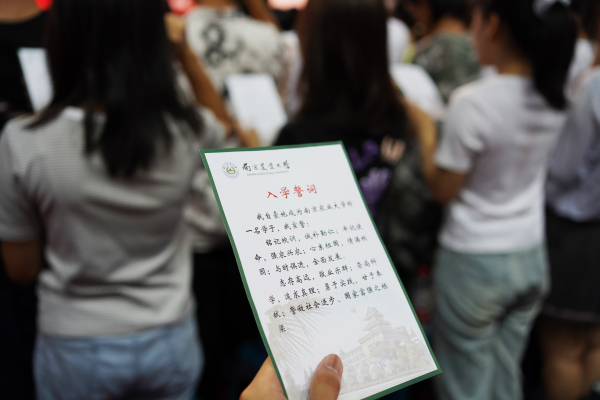 南京農業大學
入学誓词
我自豪地成为南京农业大学的
一名学子，我宣誓：
铭记校训，诚朴勤仁；牢记使
命，强农兴农；心系祖国，情满校
园；与时俱进，全面发展。
志存高远，敬业乐群；崇尚科
学，追求真理；勇于实践，甘于奉
献；誓做社会进步、国家富强之栋
梁